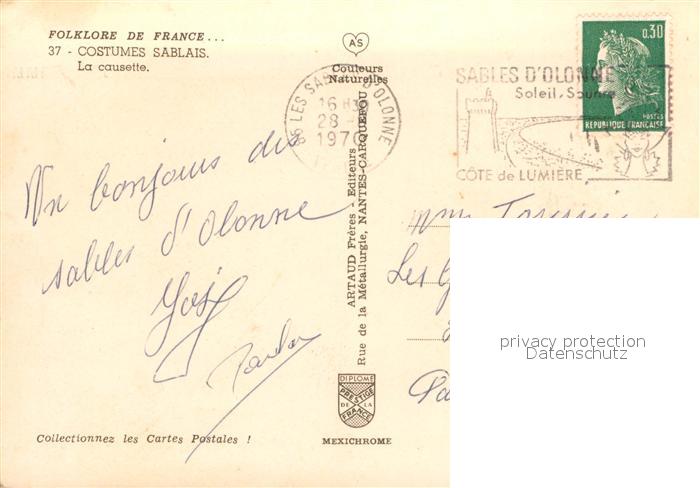 FOLKLORE DE FRANCE...
37 - COSTUMES SABLAIS.
La causette.
AS
Couleurs
Naturelles
85 LES SABLES D'OLONNE
16 H
28 -
1970
0,30
POSTES
REPUBLIQUE FRANÇAISE
SABLES D'OLONNE
Soleil, Sourire
CÔTE de LUMIÈRE
Un bonjour des
sables d'Olonne
ARTAUD Frères - Editeurs
Rue de la Métallurgie, NANTES-CARQUEFOU
Mme
Les
privacy protection
Datenschutz
DIPLOME
PRESTIGE
DE LA
FRANCE
Collectionnez les Cartes Postales !
MEXICHROME